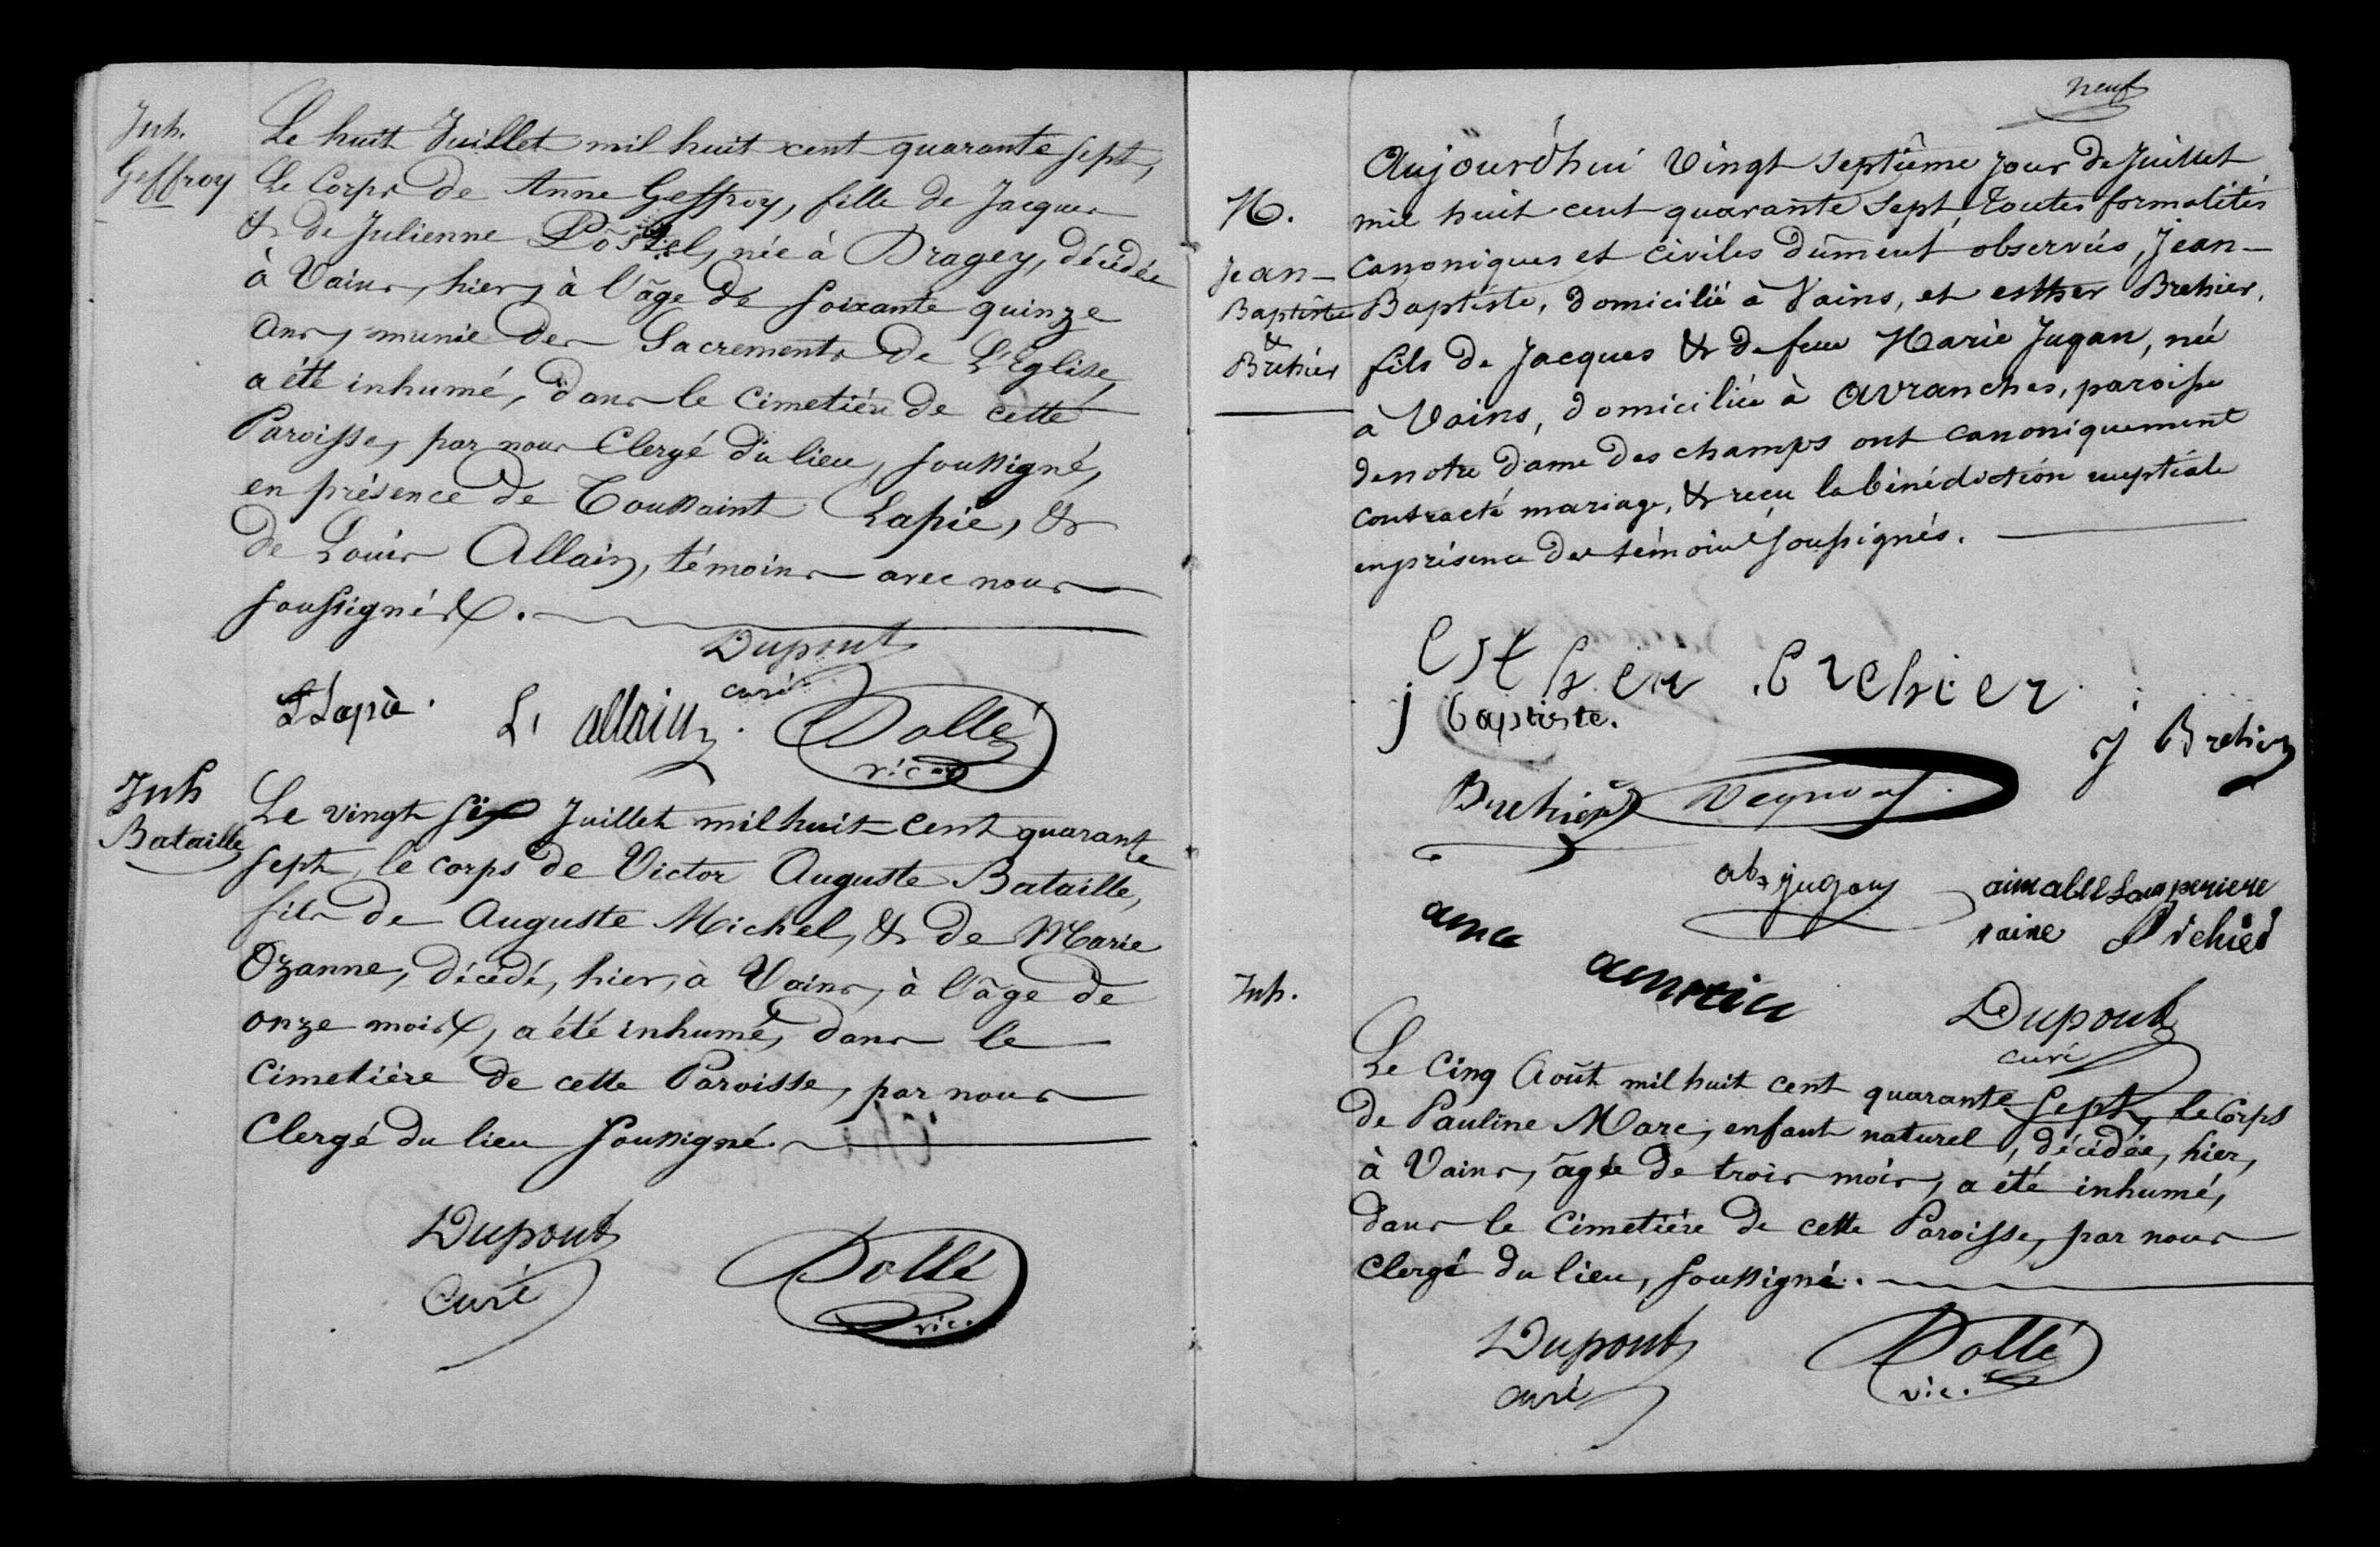 Inh.
Geffroy
Le huit Juillet mil huit cent quarante sept,
le Corps de Anne Geffroy, fille de Jacques
& de Julienne Postel, née à Dragey, décédée
à Vains, hier, à l'âge de soixante quinze
ans, munie des Sacrements de L'Eglise,
a été inhumé, dans le Cimetière de cette
Paroisse, par nous Clergé du lieu, soussigné,
en présence de Toussaint Lapie, &
de Louis Allain, témoins avec nous
soussignés.
Dupont
curé
T Lapie.
L. allain
Dollé
vic.
Inh
Bataille
Le vingt six Juillet mil huit cent quarante
sept, le corps de Victor Auguste Bataille,
fils de Auguste Michel, & de Marie
Ozanne, décédé, hier, à Vains, à l'âge de
onze mois, a été inhumé, dans le
Cimetière de cette Paroisse, par nous
Clergé du lieu soussigné.
Dupont
Curé
Dollé
vic.
neuf
M.
Jean-
Baptiste
&
Bréhier
Aujourd'hui vingt septième jour de Juillet
mil huit cent quarante sept, toutes formalités
canoniques et civiles dûment observées, Jean-
Baptiste, domicilié à Vains, et esther Bréhier,
fils de Jacques & de feue Marie Jugan, née
à Vains, domiciliée à avranches, paroisse
de notre dame des champs ont canoniquement
contracté mariage, & reçu la bénédiction nuptiale
en présence des témoins soussignés.
Esther brehier
j baptiste.
J Brehier
Brehier
abx jugan
aimable
Dupont
curé
Inh.
Le Cinq Août mil huit cent quarante sept, le Corps
de Pauline Marc, enfant naturel, décédée, hier,
à Vains, âgée de trois mois, a été inhumé,
dans le Cimetière de cette Paroisse, par nous
Clergé du lieu, soussigné.
Dupont
curé
Dollé
vic.